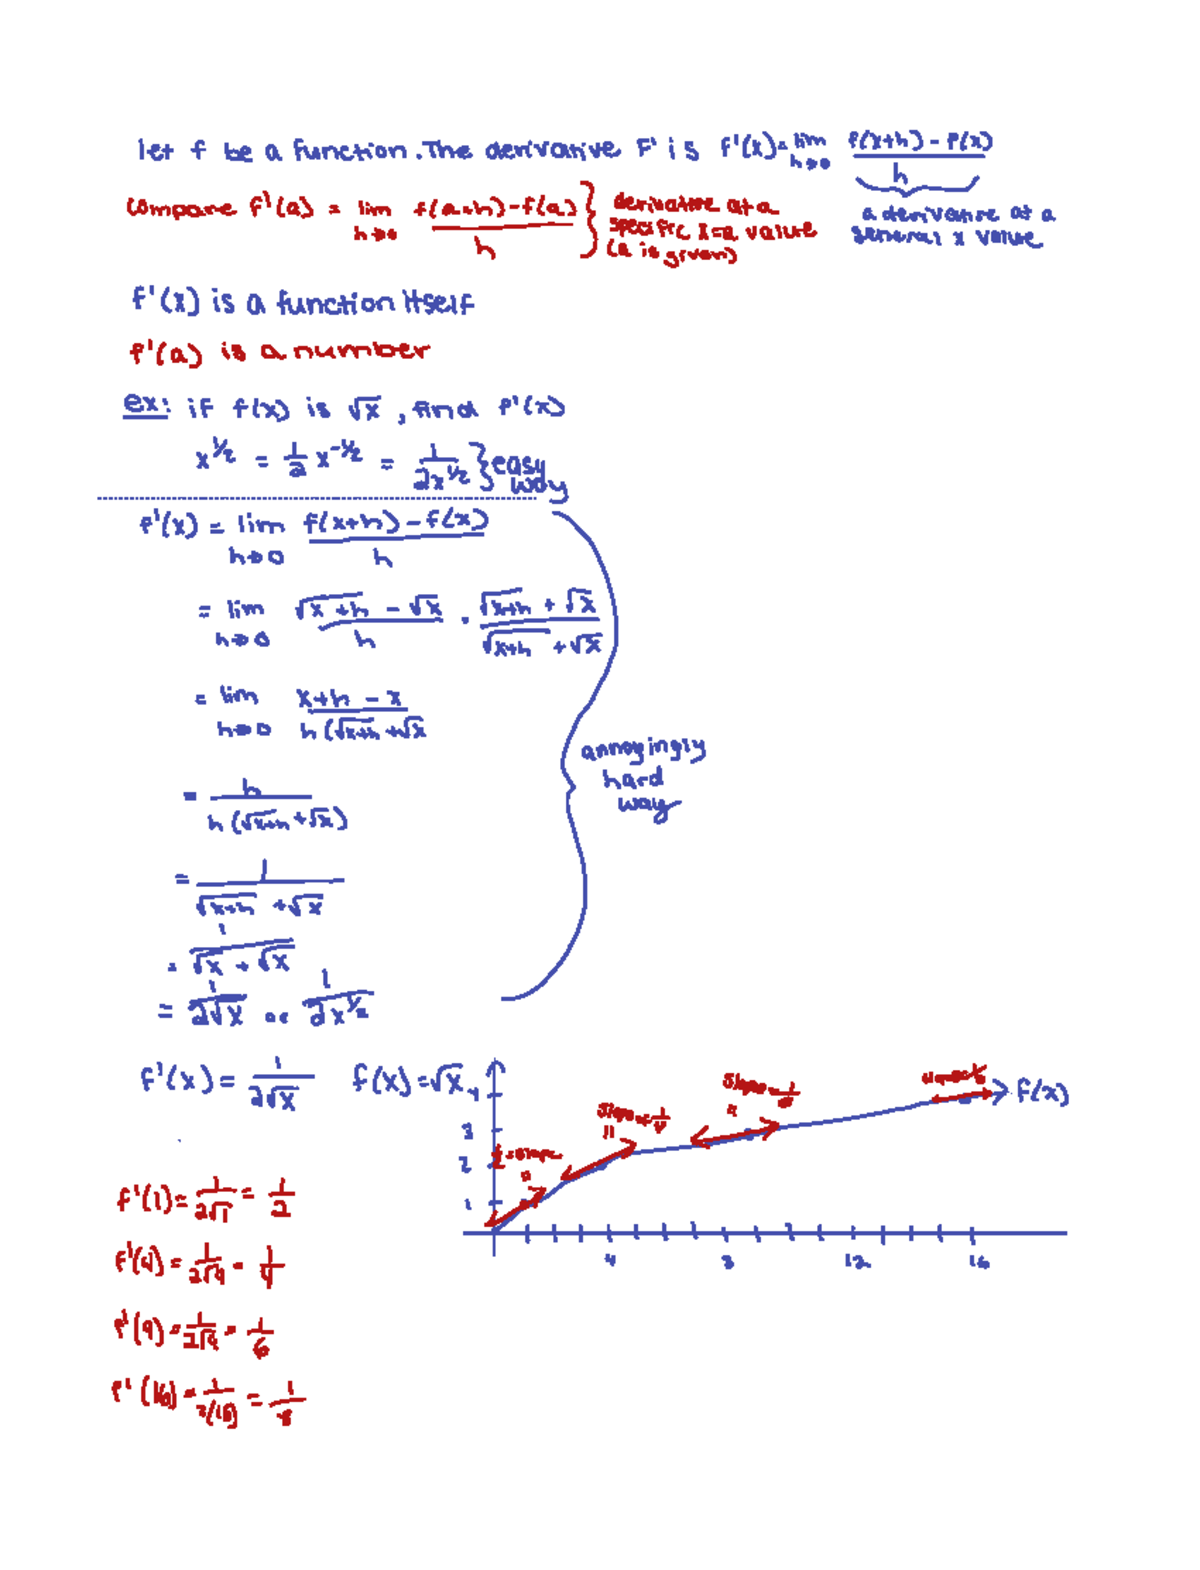 let f be a function. The derivative F' is f'(x) = lim h→0 f(x+h) - f(x) / h
a derivative at a general x value
Compare f'(a) = lim h→0 f(a+h) - f(a) / h } derivative at a specific x=a value (a is given)
f'(x) is a function itself
f'(a) is a number
ex: if f(x) is √x, find f'(x)
x^1/2 = 1/2 x^-1/2 = 1/2x^1/2 } easy way
f'(x) = lim h→0 f(x+h) - f(x) / h
= lim h→0 √x+h - √x / h · √x+h + √x / √x+h + √x
= lim h→0 x+h - x / h(√x+h + √x
annoyingly hard way
= h / h(√x+h + √x)
= 1 / √x+h + √x
= 1 / √x + √x
= 1 / 2√x or 1 / 2x^1/2
f'(x) = 1 / 2√x f(x) = √x
4
3
2
1
4 8 12 16
1/2 = slope
slope = 1/4
slope =
f(x)
f'(1) = 1 / 2√1 = 1/2
f'(4) = 1 / 2√4 = 1/4
f'(9) = 1 / 2√9 = 1/6
f'(16) = 1 / 2√16 = 1/8